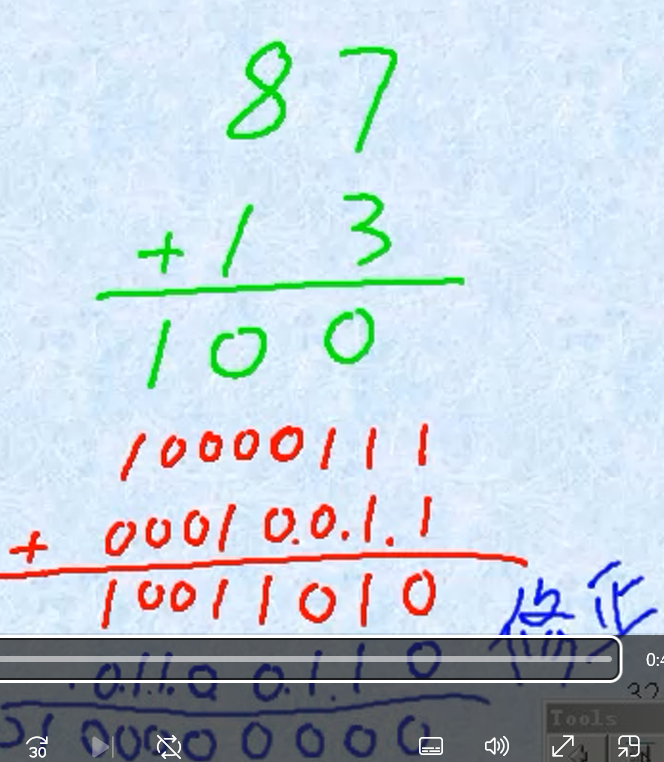 8 7
+ 1 3
1 0 0
10000111
+ 00010011
10011010
修正
01100110
0:4
32
1 00000000
Tools
30